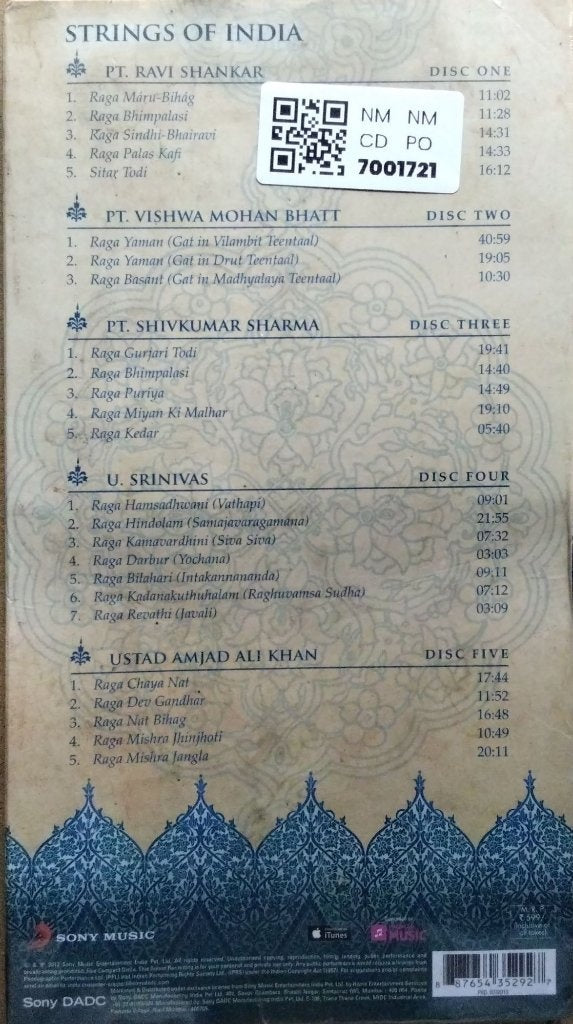 STRINGS OF INDIA
PT. RAVI SHANKAR DISC ONE
1. Raga Maru-Bihag 11:02
2. Raga Bhimpalasi 11:28
3. Raga Sindhi-Bhairavi 14:31
4. Raga Palas Kafi 14:33
5. Sitar Todi 16:12
NM NM
CD PO
7001721
PT. VISHWA MOHAN BHATT DISC TWO
1. Raga Yaman (Gat in Vilambit Teentaal) 40:59
2. Raga Yaman (Gat in Drut Teentaal) 19:05
3. Raga Basant (Gat in Madhyalaya Teentaal) 10:30
PT. SHIVKUMAR SHARMA DISC THREE
1. Raga Gurjari Todi 19:41
2. Raga Bhimpalasi 14:40
3. Raga Puriya 14:49
4. Raga Miyan Ki Malhar 19:10
5. Raga Kedar 05:40
U. SRINIVAS DISC FOUR
1. Raga Hamsadhwani (Vathapi) 09:01
2. Raga Hindolam (Samajavaragamana) 21:55
3. Raga Kamavardhini (Siva Siva) 07:32
4. Raga Darbur (Yochana) 03:03
5. Raga Bilahari (Intakannananda) 09:11
6. Raga Kadanakuthuhalam (Raghuvamsa Sudha) 07:12
7. Raga Revathi (Javali) 03:09
USTAD AMJAD ALI KHAN DISC FIVE
1. Raga Chaya Nat 17:44
2. Raga Dev Gandhar 11:52
3. Raga Nat Bihag 16:48
4. Raga Mishra Jhinjhoti 10:49
5. Raga Mishra Jangla 20:11
M.R.P.
₹ 599/-
SONY MUSIC
iTunes
MUSIC
Sony DADC
8 87654 35292 7